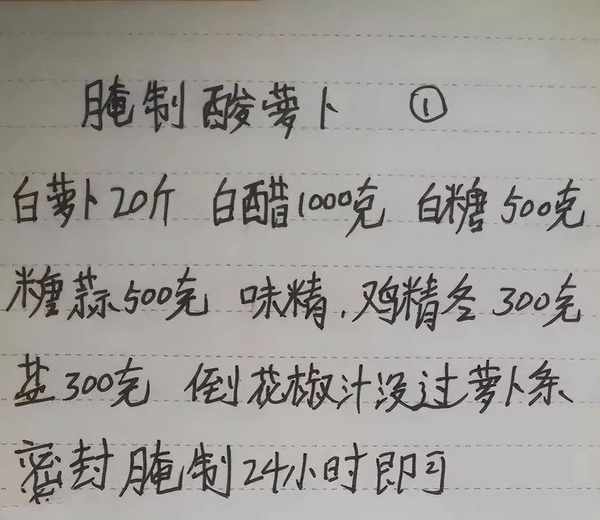 腌制酸萝卜 ①
白萝卜20斤 白醋1000克 白糖500克
糖蒜500克 味精.鸡精各300克
盐300克 倒花椒汁没过萝卜条
密封腌制24小时即可